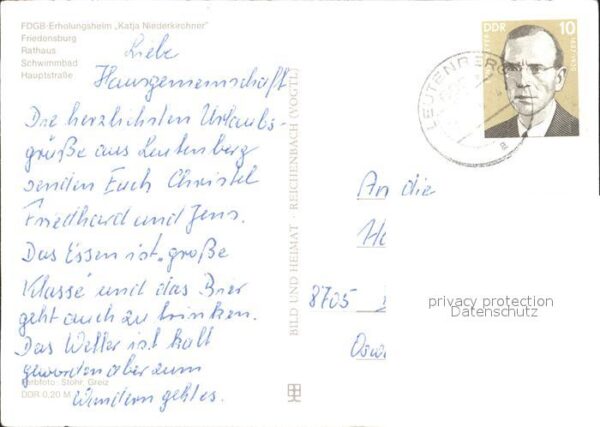 FDGB-Erholungsheim „Katja Niederkirchner"
Friedensburg
Rathaus
Schwimmbad
Hauptstraße
Liebe
Hausgemeinschaft
Die herzlichsten Urlaubs-
grüße aus Leutenberg
senden Euch Christel
Friedhard und Jens.
Das Essen ist „große
Klasse" und das Bier
geht auch zu trinken.
Das Wetter ist kalt
geworden aber zum
Wandern geht es.
Farbfoto: Stöhr, Greiz
DDR 0,20 M
BILD UND HEIMAT REICHENBACH (VOGTL)
DDR 10
LEUTENBERG
a
An die
Ha
8705
Osw
privacy protection
Datenschutz